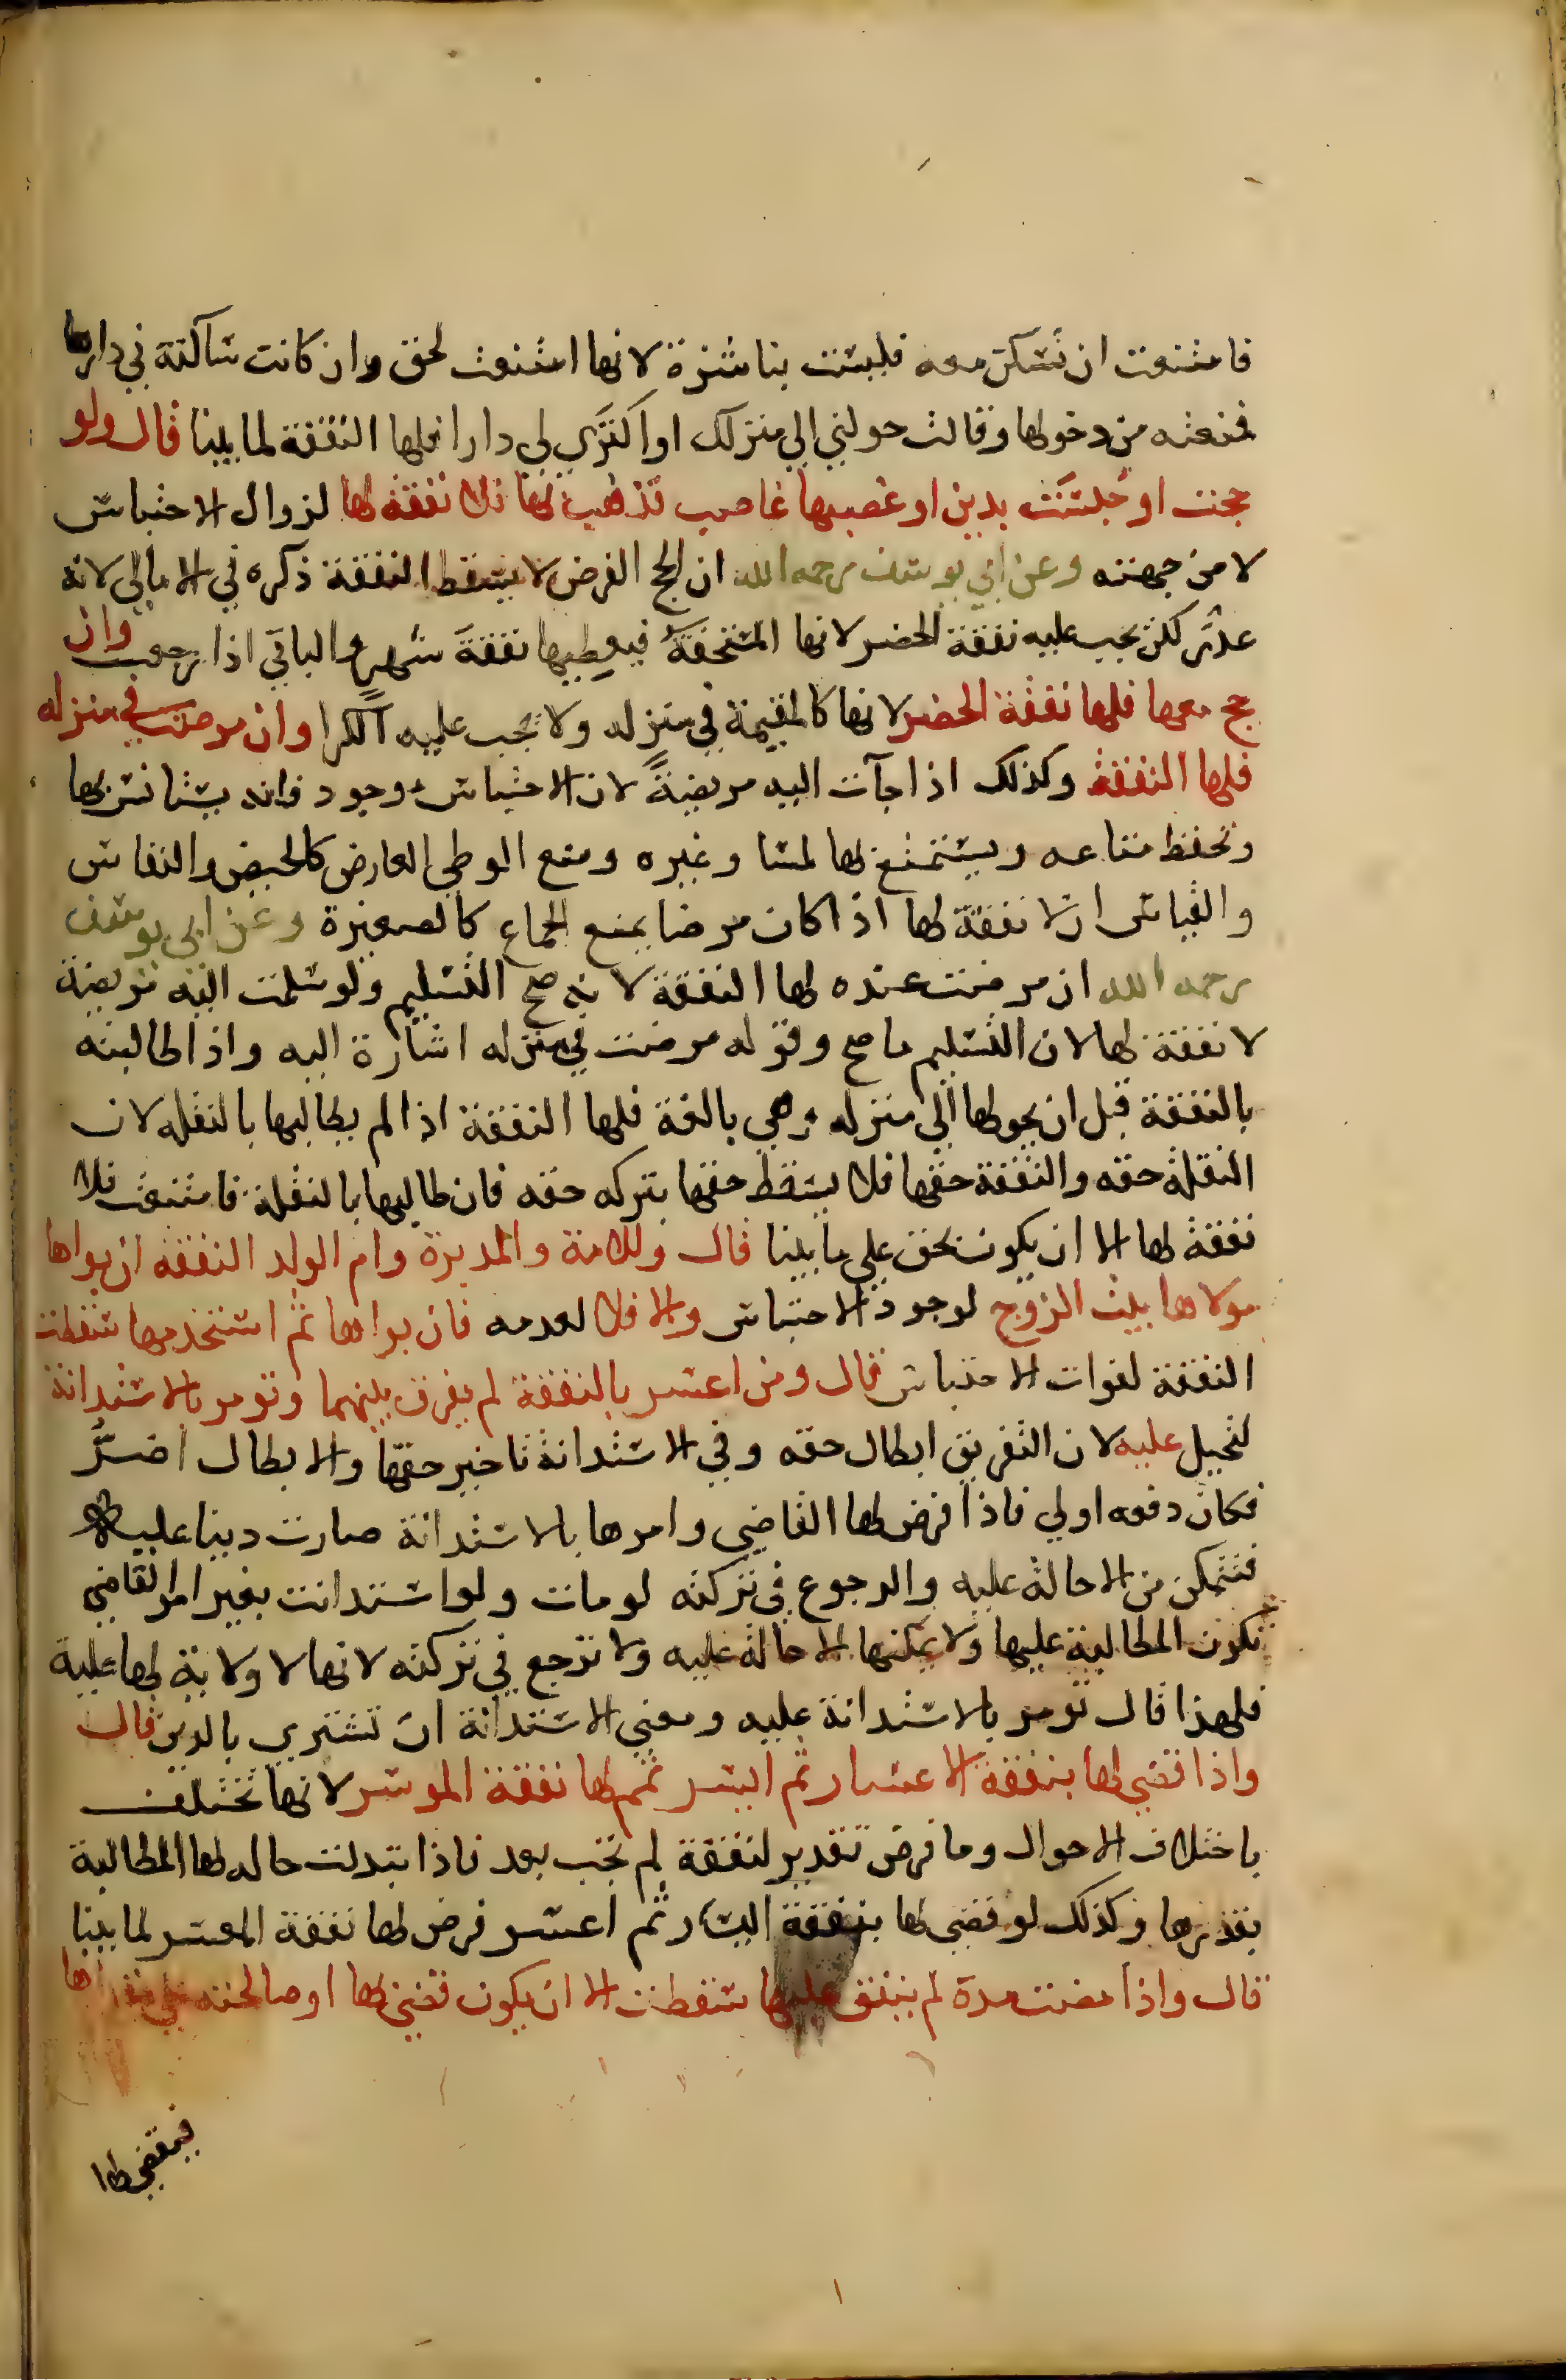 فامتنعت ان تسكن معه فليست بناشزة لانها امتنعت لحق وان كانت ساكنة في دارها
فمنعته من دخولها وقالت حولني الي منزلك او اكتري لي دارا فلها النفقة لما بينا قال ولو
حجت او حبست بدين او غصبها غاصب فذهب بها فلا نفقة لها لزوال الاحتباس
لا من جهته وعن ابي يوسف رحمه الله ان الحج الفرض لا يسقط النفقة ذكره في الامالي لانه
عذر لكن يجب عليه نفقة الحضر لانها المستحقة فيعطيها نفقة شهر والباقي اذا رجعت وان
حج معها فلها نفقة الحضر لانها كالمقيمة في منزله ولا يجب عليه الكرا وان مرضت في منزله
فلها النفقة وكذلك اذا جآت اليه مريضة لان الاحتباس موجود فانه يستانس بها
وتحفظ متاعه ويستمتع بها لمسا وغيره ومنع الوطي لعارض كالحيض والنفاس
والقياس ان لا نفقة لها اذا كان مرضا يمنع الجماع كالصغيرة وعن ابي يوسف
رحمه الله ان مرضت عنده لها النفقة لانه صح التسليم ولو سلمت اليه مريضة
لا نفقة لها لان التسليم ما صح وقوله مرضت في منزله اشارة اليه واذا طالبته
بالنفقة قبل ان يحولها الي منزله وهي بالغة فلها النفقة اذا لم يطالبها بالنقلة لان
النقلة حقه والنفقة حقها فلا يسقط حقها بتركه حقه فان طالبها بالنقلة فامتنعت فلا
نفقة لها الا ان يكون بحق علي ما بينا قال وللامة والمدبرة وام الولد النفقة ان بواها
مولاها بيت الزوج لوجود الاحتباس والا فلا لعدمه فان بواها ثم استخدمها سقطت
النفقة لفوات الاحتباس قال ومن اعسر بالنفقة لم يفرق بينهما وتومر بالاستدانة
لتحيل عليه لان التفريق ابطال حقه وفي الاستدانة تاخير حقها والابطال اضر
فكان دفعه اولي فاذا فرض لها القاضي وامرها بالاستدانة صارت دينا عليه
فتتمكن من الاحالة عليه والرجوع في تركته لو مات ولو استدانت بغير امر القاضي
تكون المطالبة عليها ولا يمكنها الاحالة عليه ولا ترجع في تركته لانها لا ولاية لها عليه
فلهذا قال تومر بالاستدانة عليه ومعني الاستدانة ان تشتري بالدين قال
واذا قضي لها بنفقة الاعسار ثم ايسر تمم لها نفقة الموسر لانها تختلف
باختلاف الاحوال وما فرض تقدير لنفقة لم تجب بعد فاذا تبدلت حاله لها المطالبة
بقدرها وكذلك لو قضي لها بنفقة اليسار ثم اعسر فرض لها نفقة المعسر لما بينا
قال واذا مضت مدة لم ينفق عليها سقطت الا ان يكون قضي لها او صالحته علي مقدارها
فيقضي لها